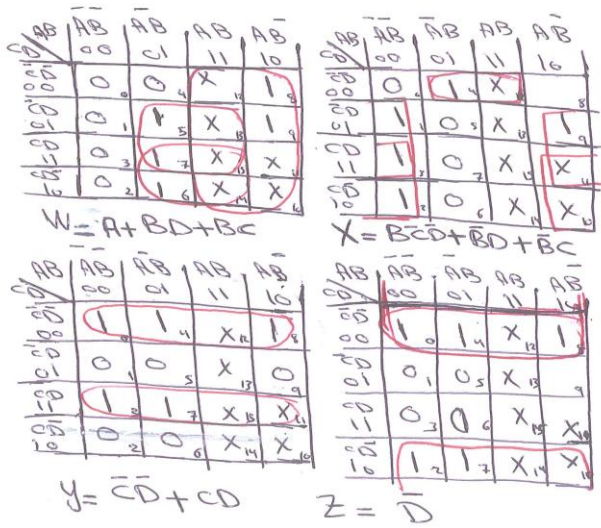 AB A̅B̅ A̅B AB AB̅
CD 00 01 11 10
C̅D̅ 00 0 0 0 4 X 12 1 8
C̅D 01 0 1 1 5 X 13 1 9
CD 11 0 3 1 7 X 15 X 11
CD̅ 10 0 2 1 6 X 14 X 10
W = A + BD + BC
AB A̅B̅ A̅B AB AB̅
CD 00 01 11 10
C̅D̅ 00 0 0 1 4 X 12 8
C̅D 01 1 1 0 5 X 13 1 9
CD 11 1 3 0 7 X 15 X 11
CD̅ 10 1 2 0 6 X 14 X 10
X = BC̅D̅ + B̅D + B̅C
AB A̅B̅ A̅B AB AB̅
CD 00 01 11 10
C̅D̅ 00 1 0 1 4 X 12 1 8
C̅D 01 0 1 0 5 X 13 0 9
CD 11 1 1 7 X 15 X 11
CD̅ 10 0 2 0 6 X 14 X 10
y = C̅D̅ + CD
AB A̅B̅ A̅B AB AB̅
CD 00 01 11 10
C̅D̅ 00 1 0 1 4 X 12 1
C̅D 01 0 1 0 5 X 13 9
CD 11 0 3 0 6 X 15 X
CD̅ 10 1 2 1 7 X 14 X
Z = D̅